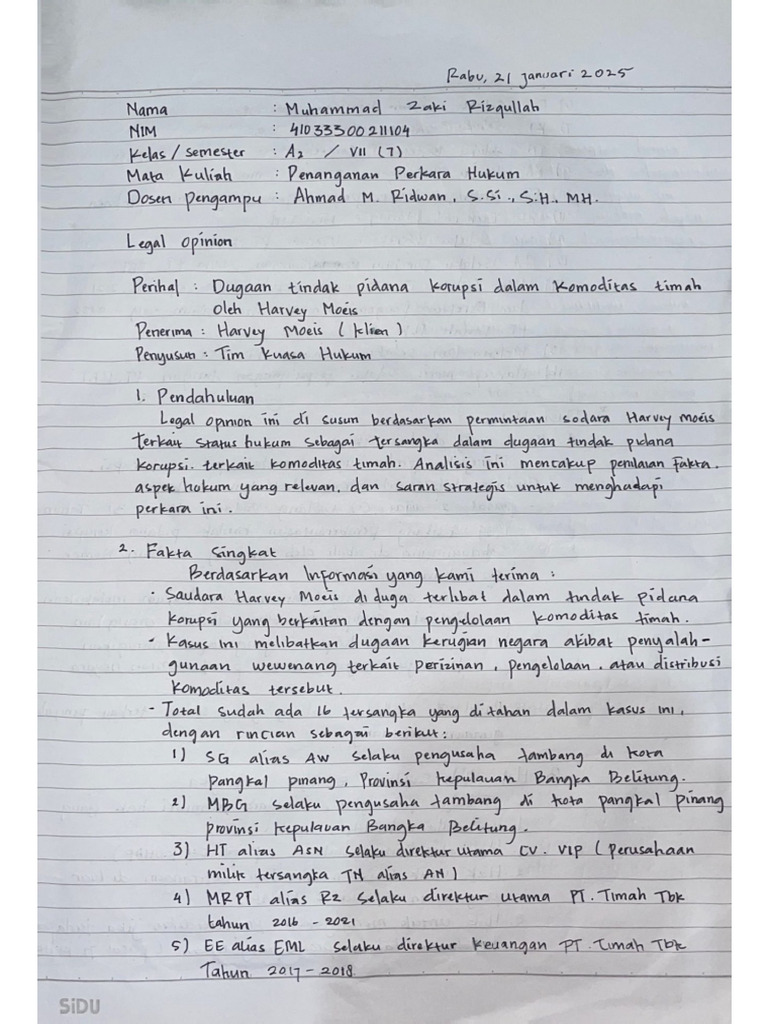 Rabu, 21 Januari 2025
Nama : Muhammad Zaki Rizqullah
NIM : 41033300211104
Kelas / Semester : A2 / VII (7)
Mata Kuliah : Penanganan Perkara Hukum
Dosen Pengampu : Ahmad M. Ridwan, S.Si., S.H., MH.
Legal Opinion
Perihal : Dugaan tindak pidana korupsi dalam komoditas timah
oleh Harvey Moeis
Penerima : Harvey Moeis (Klien)
Penyusun : Tim Kuasa Hukum
1. Pendahuluan
Legal opinion ini di susun berdasarkan permintaan sodara Harvey moeis
terkait status hukum sebagai tersangka dalam dugaan tindak pidana
korupsi. terkait komoditas timah. Analisis ini mencakup penilaian fakta,
aspek hukum yang relevan, dan saran strategis untuk menghadapi
perkara ini.
2. Fakta Singkat
Berdasarkan Informasi yang kami terima :
- Saudara Harvey Moeis di duga terlibat dalam tindak pidana
korupsi yang berkaitan dengan pengelolaan komoditas timah.
- Kasus ini melibatkan dugaan kerugian negara akibat penyalah-
gunaan wewenang terkait perizinan, pengelolaan, atau distribusi
komoditas tersebut.
- Total sudah ada 16 tersangka yang di tahan dalam kasus ini,
dengan rincian sebagai berikut :
1) SG alias AW selaku pengusaha tambang di kota
Pangkal pinang, Provinsi Kepulauan Bangka Belitung.
2) MBG selaku pengusaha tambang di kota pangkal pinang
provinsi kepulauan Bangka Belitung.
3) HT alias ASN selaku direktur utama CV. VIP (perusahaan
milik tersangka TN alias AN)
4) MRPT alias RZ selaku direktur utama PT. Timah Tbk
tahun 2016 - 2021
5) EE alias EML selaku direktur keuangan PT. Timah Tbk
Tahun 2017 - 2018
SiDU